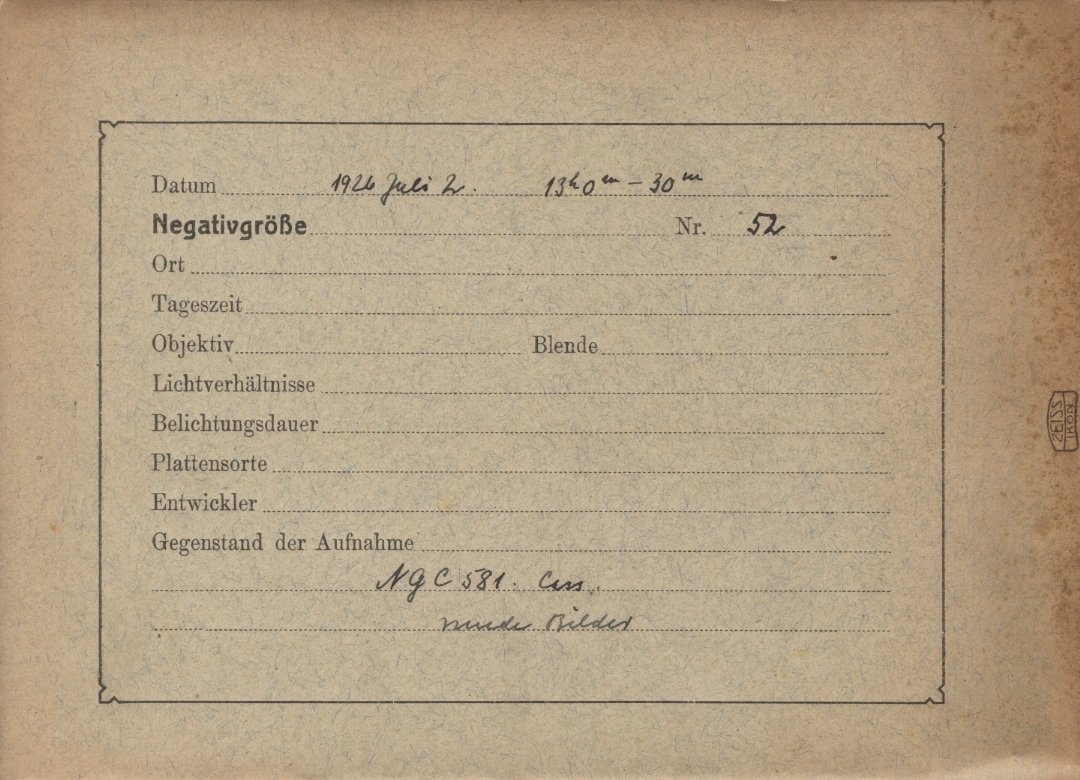 Datum 1926 Juli 2. 13h 0m – 30m
Negativgröße Nr. 52
Ort
Tageszeit
Objektiv Blende
Lichtverhältnisse
Belichtungsdauer
Plattensorte
Entwickler
Gegenstand der Aufnahme
NGC 581. Cass.
runde Bilder
ZEISS
IKON